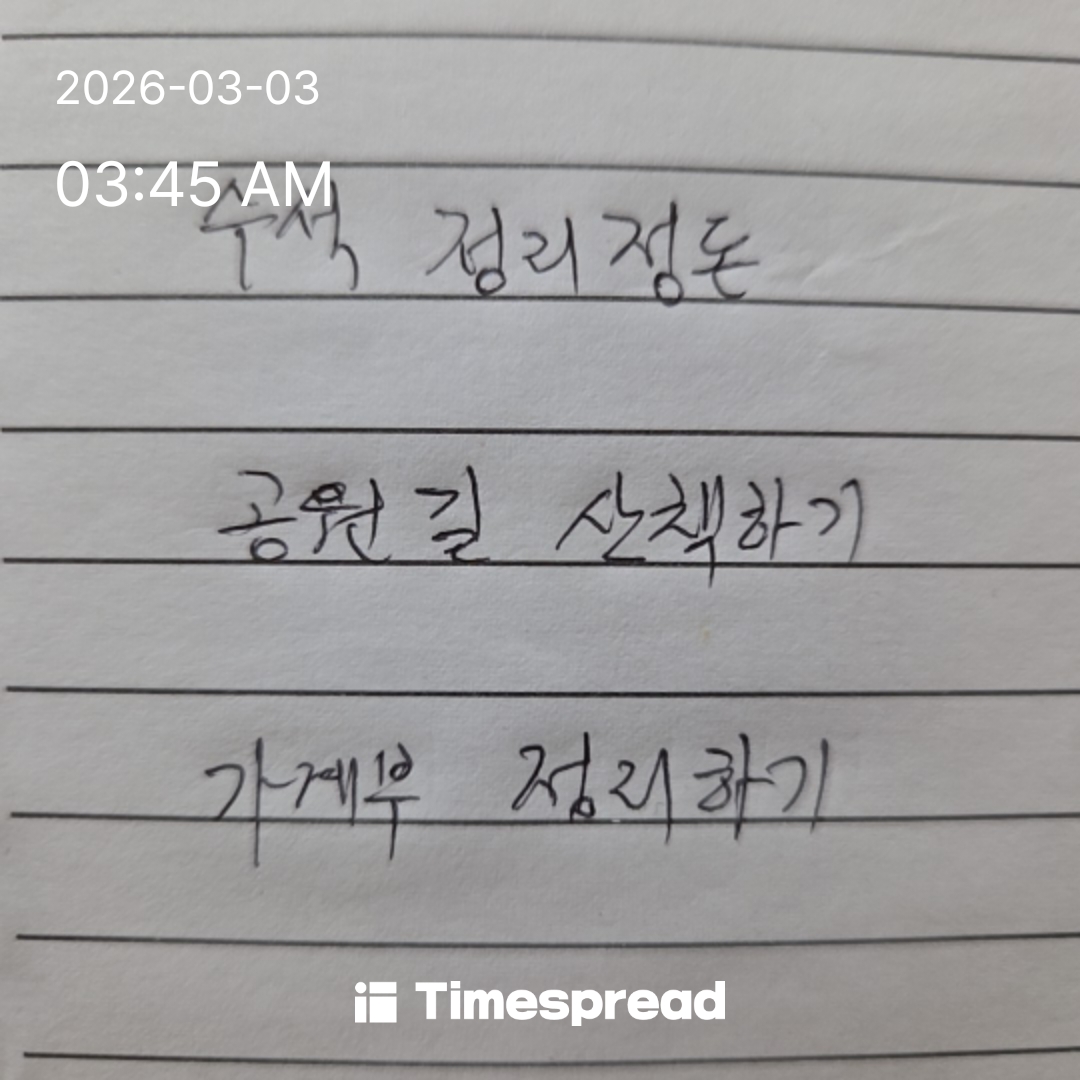 2026-03-03
03:45 AM
수석 정리정돈
공원길 산책하기
가계부 정리하기
Timespread